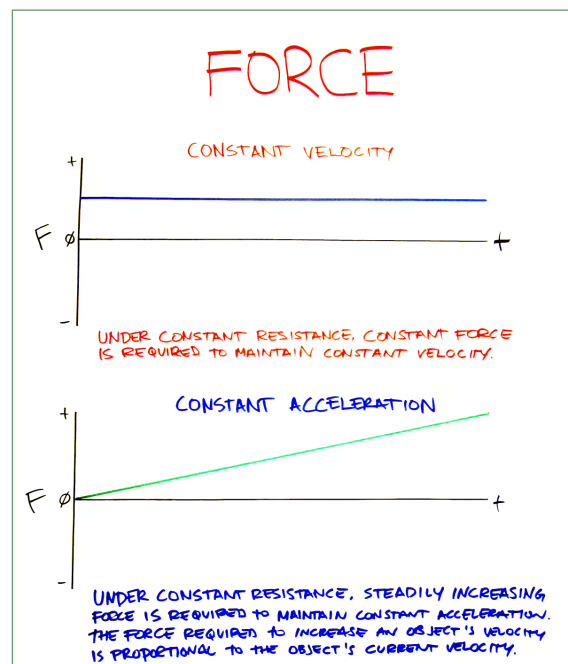 FORCE
CONSTANT VELOCITY
+
F Ø
+
-
UNDER CONSTANT RESISTANCE, CONSTANT FORCE
IS REQUIRED TO MAINTAIN CONSTANT VELOCITY.
CONSTANT ACCELERATION
+
F Ø
+
-
UNDER CONSTANT RESISTANCE, STEADILY INCREASING
FORCE IS REQUIRED TO MAINTAIN CONSTANT ACCELERATION.
THE FORCE REQUIRED TO INCREASE AN OBJECT'S VELOCITY
IS PROPORTIONAL TO THE OBJECT'S CURRENT VELOCITY.